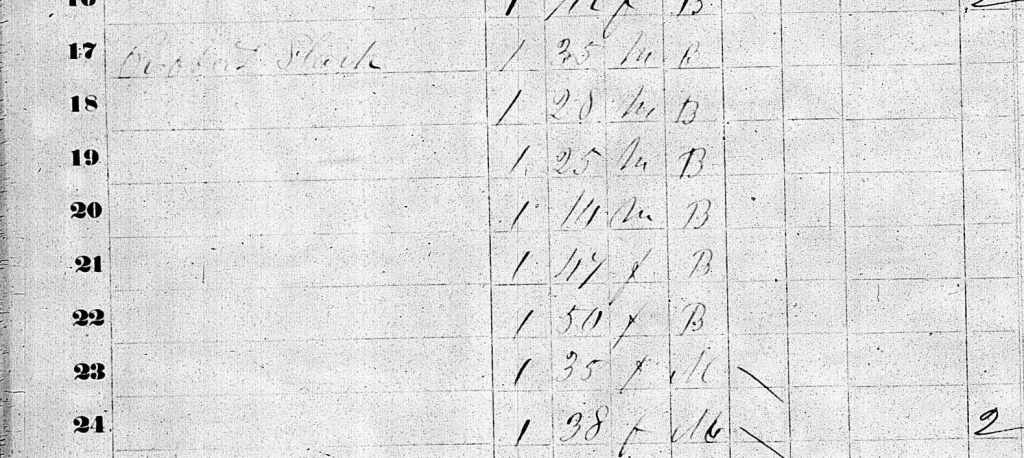 16 1 f B
17 Robert 1 35 m B
18 1 28 m B
19 1 25 m B
20 1 14 m B
21 1 47 f B
22 1 50 f B
23 1 35 f M
24 1 38 f M 2